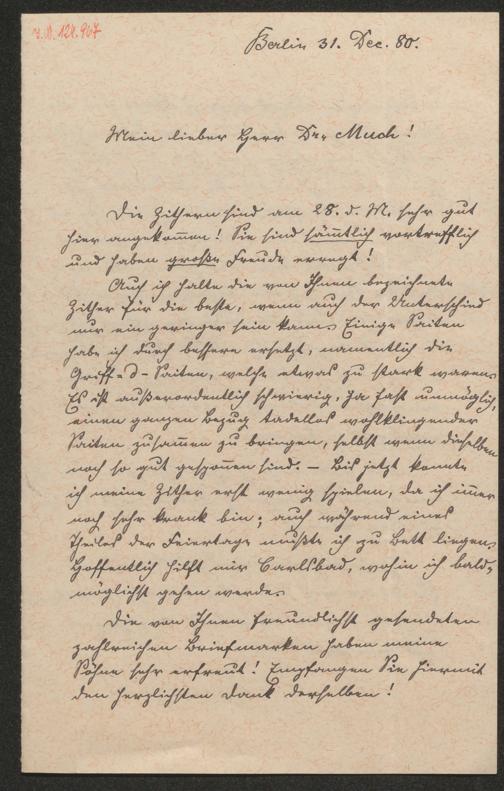 J.N. 124.967
Berlin 31. Dec. 80.
Mein lieber Herr Dr. Much!
Die Zithern sind am 28. d. M. sehr gut
hier angekom̄en! Sie sind sämtlich vortrefflich
und haben große Freude erregt!
Auch ich halte die von Ihnen bezeichnete
Zither für die beste, wenn auch der Unterschied
nur ein geringer sein kann. Einige Saiten
habe ich durch bessere ersetzt, namentlich die
Griff-d-Saiten, welche etwas zu stark waren.
Es ist außerordentlich schwierig, ja fast unmöglich,
einen ganzen Bezug tadellos wohlklingender
Saiten zusam̄en zu bringen, selbst wenn dieselben
noch so gut gesponnen sind. – Bis jetzt konnte
ich meine Zither erst wenig spielen, da ich im̄er
noch sehr krank bin; auch während eines
Theiles der Feiertage mußte ich zu Bett liegen.
Hoffentlich hilft mir Carlsbad, wohin ich bald-
möglichst gehen werde.
Die von Ihnen freundlichst gesendeten
zahlreichen Briefmarken haben meine
Söhne sehr erfreut! Empfangen Sie hiermit
den herzlichsten Dank derselben!